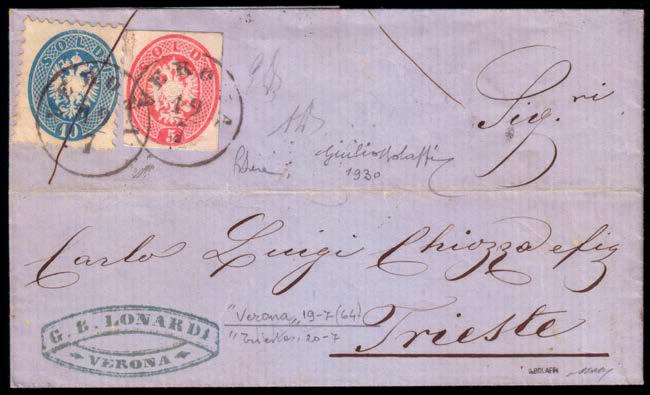 SOLDI
10
SOLDI
5
VERONA
19
7
VERONA
19
7
Sig.ri
Giulio Bolaffi
1930
Carlo Luigi Chiozza e fig
Trieste
G. B. LONARDI
VERONA
"Verona,, 19-7 (64)
"Trieste,, 20-7